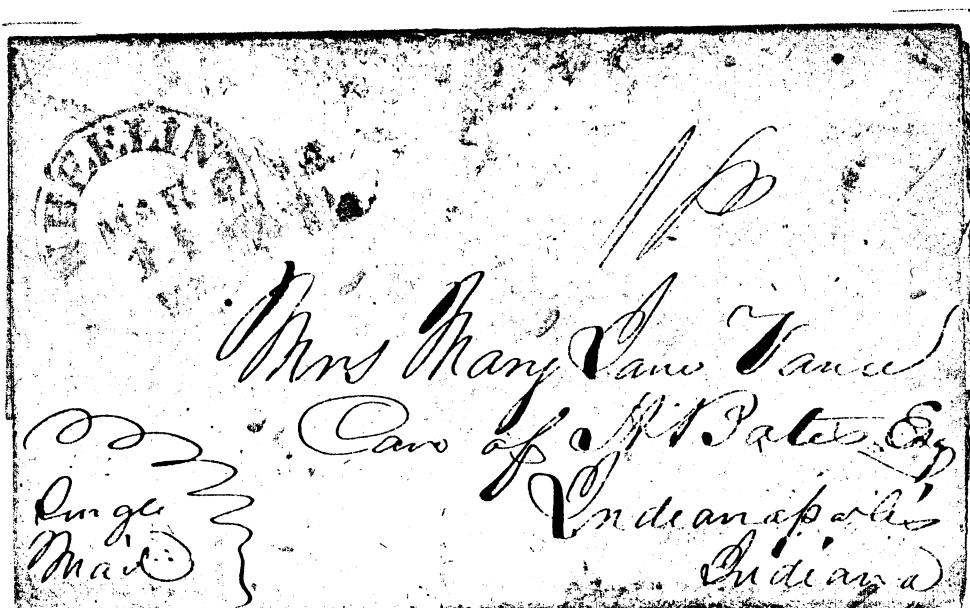 WHEELING
MAR
Mrs Mary Jane Vance
Care of H Bates Esq
Indianapolis
Indiana
Single
Mail